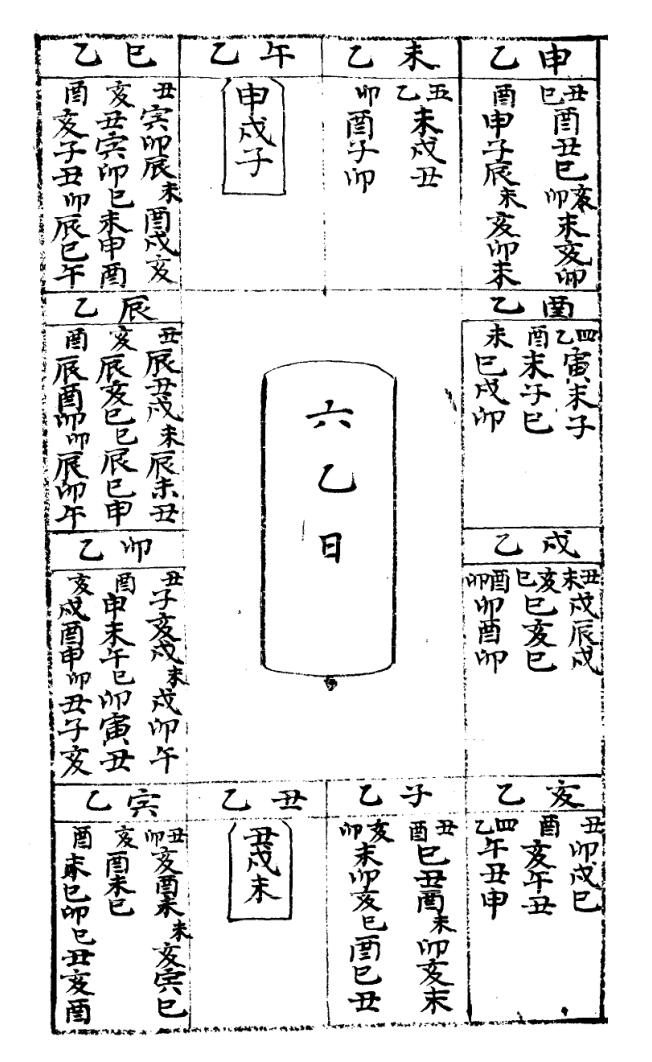 乙巳
丑寅卯辰未酉戌亥
亥丑寅卯巳未申酉
酉亥子丑卯辰巳午
乙午
申戌子
乙未
丑乙未戌丑
卯酉子卯
乙申
丑巳酉丑巳亥卯未亥卯
酉申子辰未亥卯未
乙辰
丑辰丑戌未辰未丑
亥辰亥巳巳辰巳申
酉辰酉卯卯辰卯午
六乙日
乙酉
四乙寅未子
酉未子巳
未巳戌卯
乙卯
丑子亥戌未戌卯午
酉申未午巳卯寅丑
亥戌酉申卯丑子亥
乙戌
丑未戌辰戌
亥巳巳亥巳
酉卯卯酉卯
乙寅
丑卯亥酉未未亥寅巳
亥酉未巳
酉未巳卯巳丑亥酉
乙丑
丑戌未
乙子
丑酉巳丑酉未卯亥未
亥卯未卯亥巳酉巳丑
乙亥
丑卯戌巳
酉亥午丑
四乙午丑申